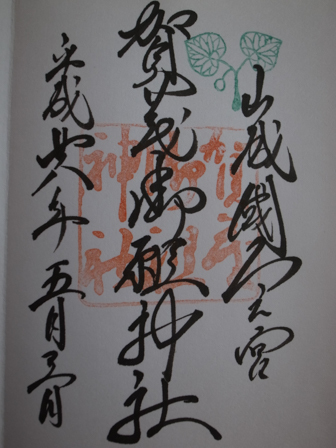 山城國一之宮
賀茂御祖神社
平成廿八年五月